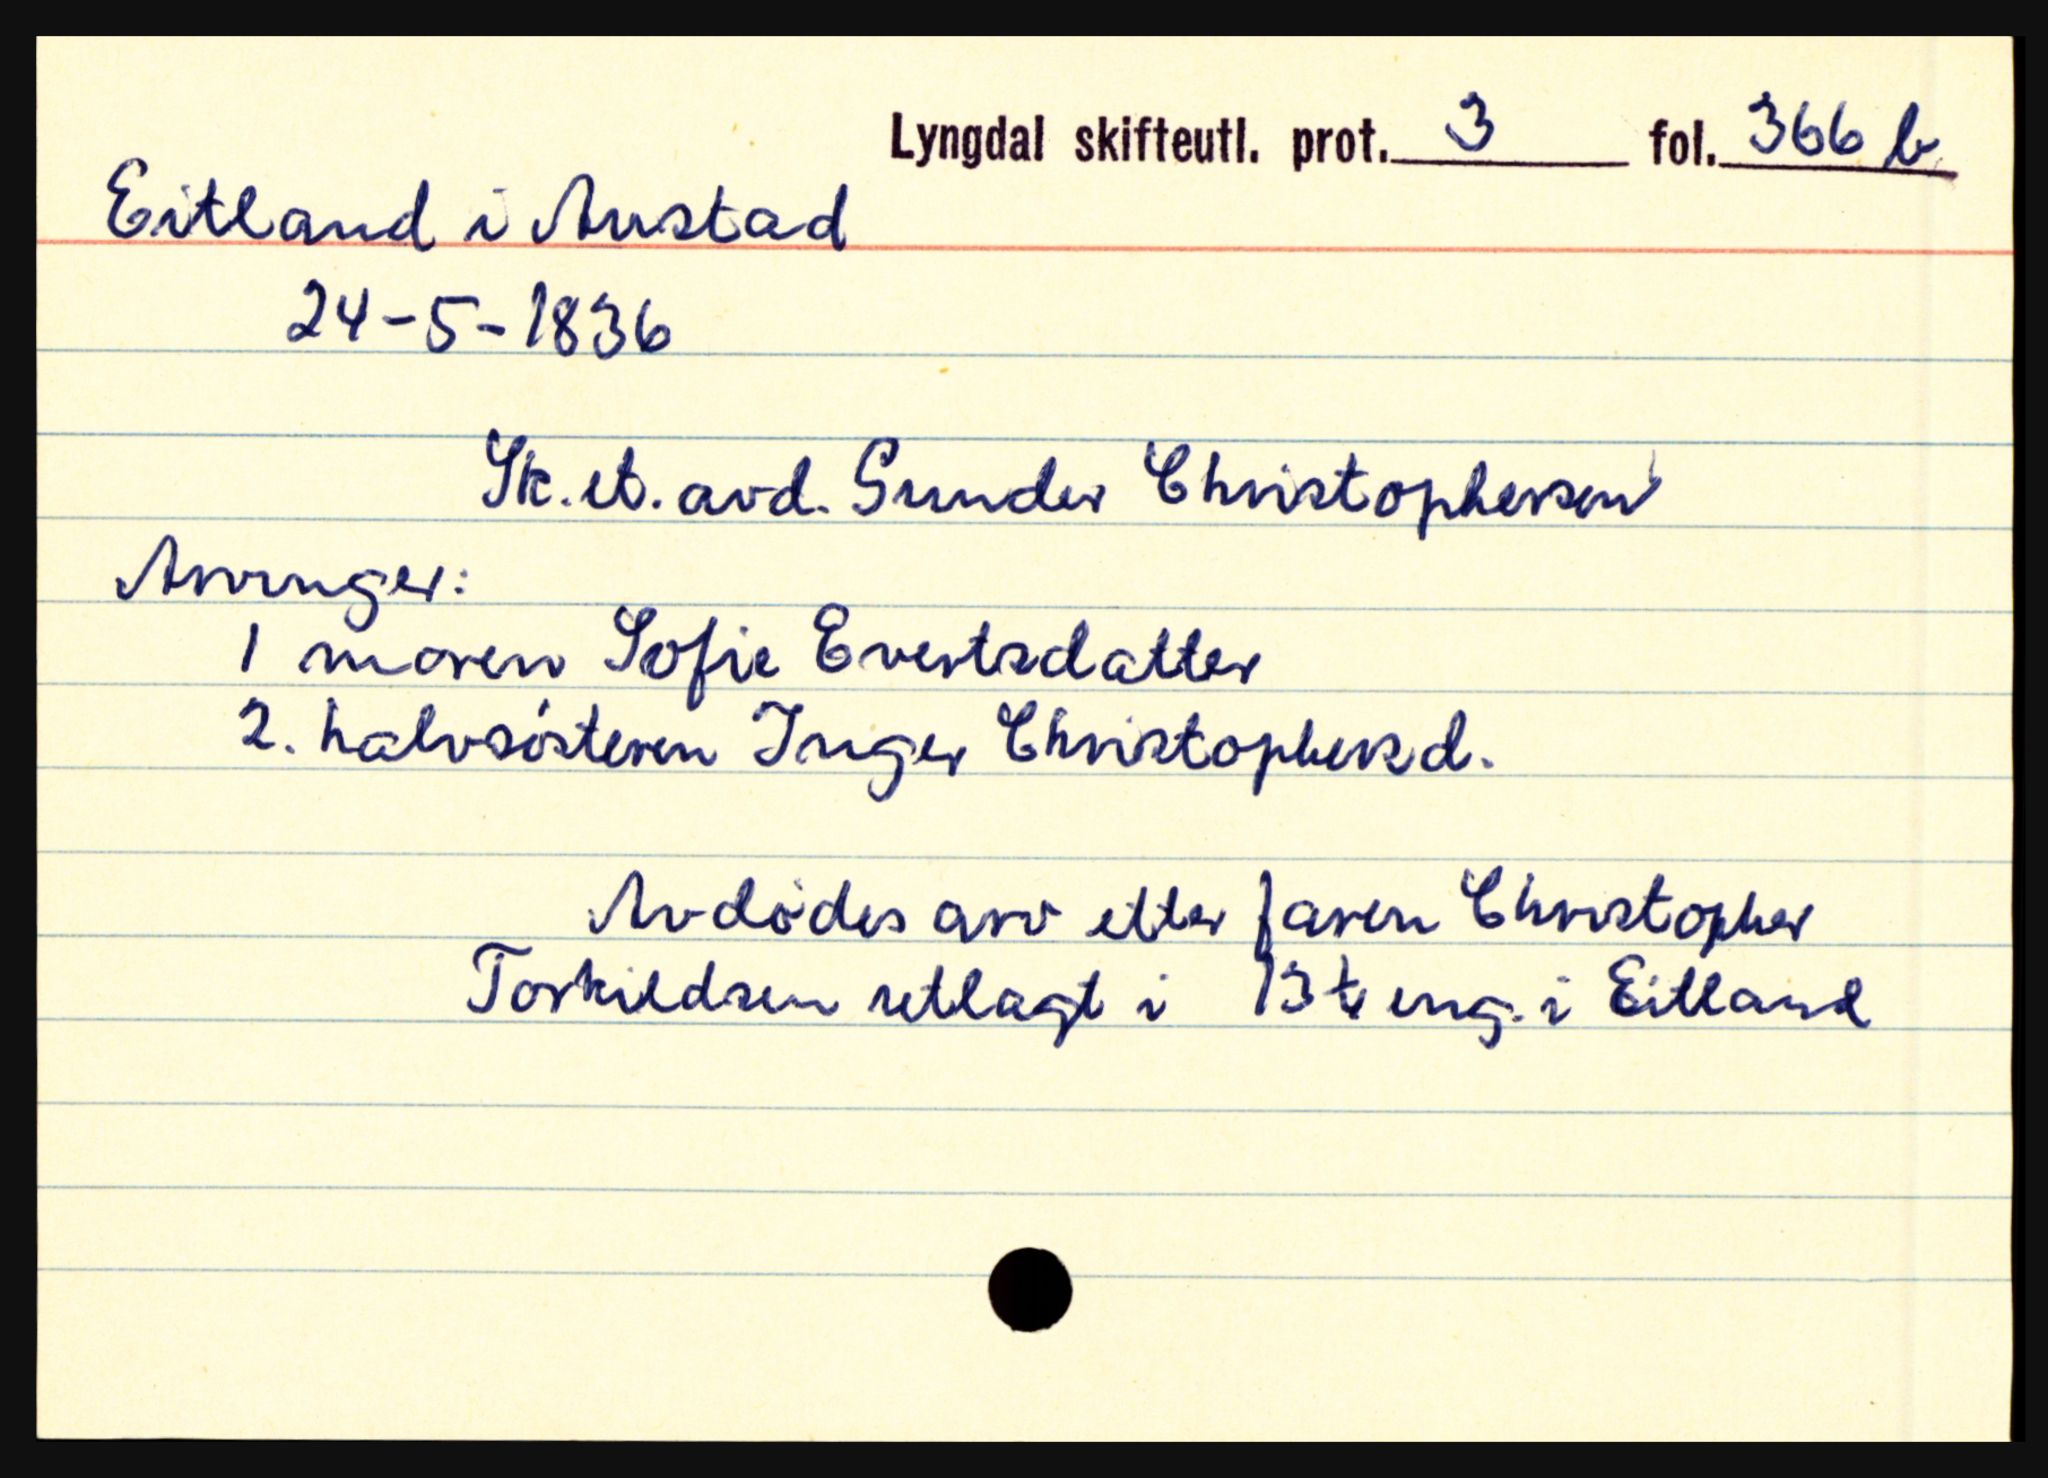 Lyngdal skifteutl. prot. 3 fol. 366 b
Eitland i Austad
24-5-1836
Sk. et. avd. Gunder Christophersen
Arvinger:
1 moren Sofie Evertsdatter
2. halvsösteren Inger Christophersd.
Avdödes arv etter faren Christopher
Torkildsen utlagt i eng. i Eitland